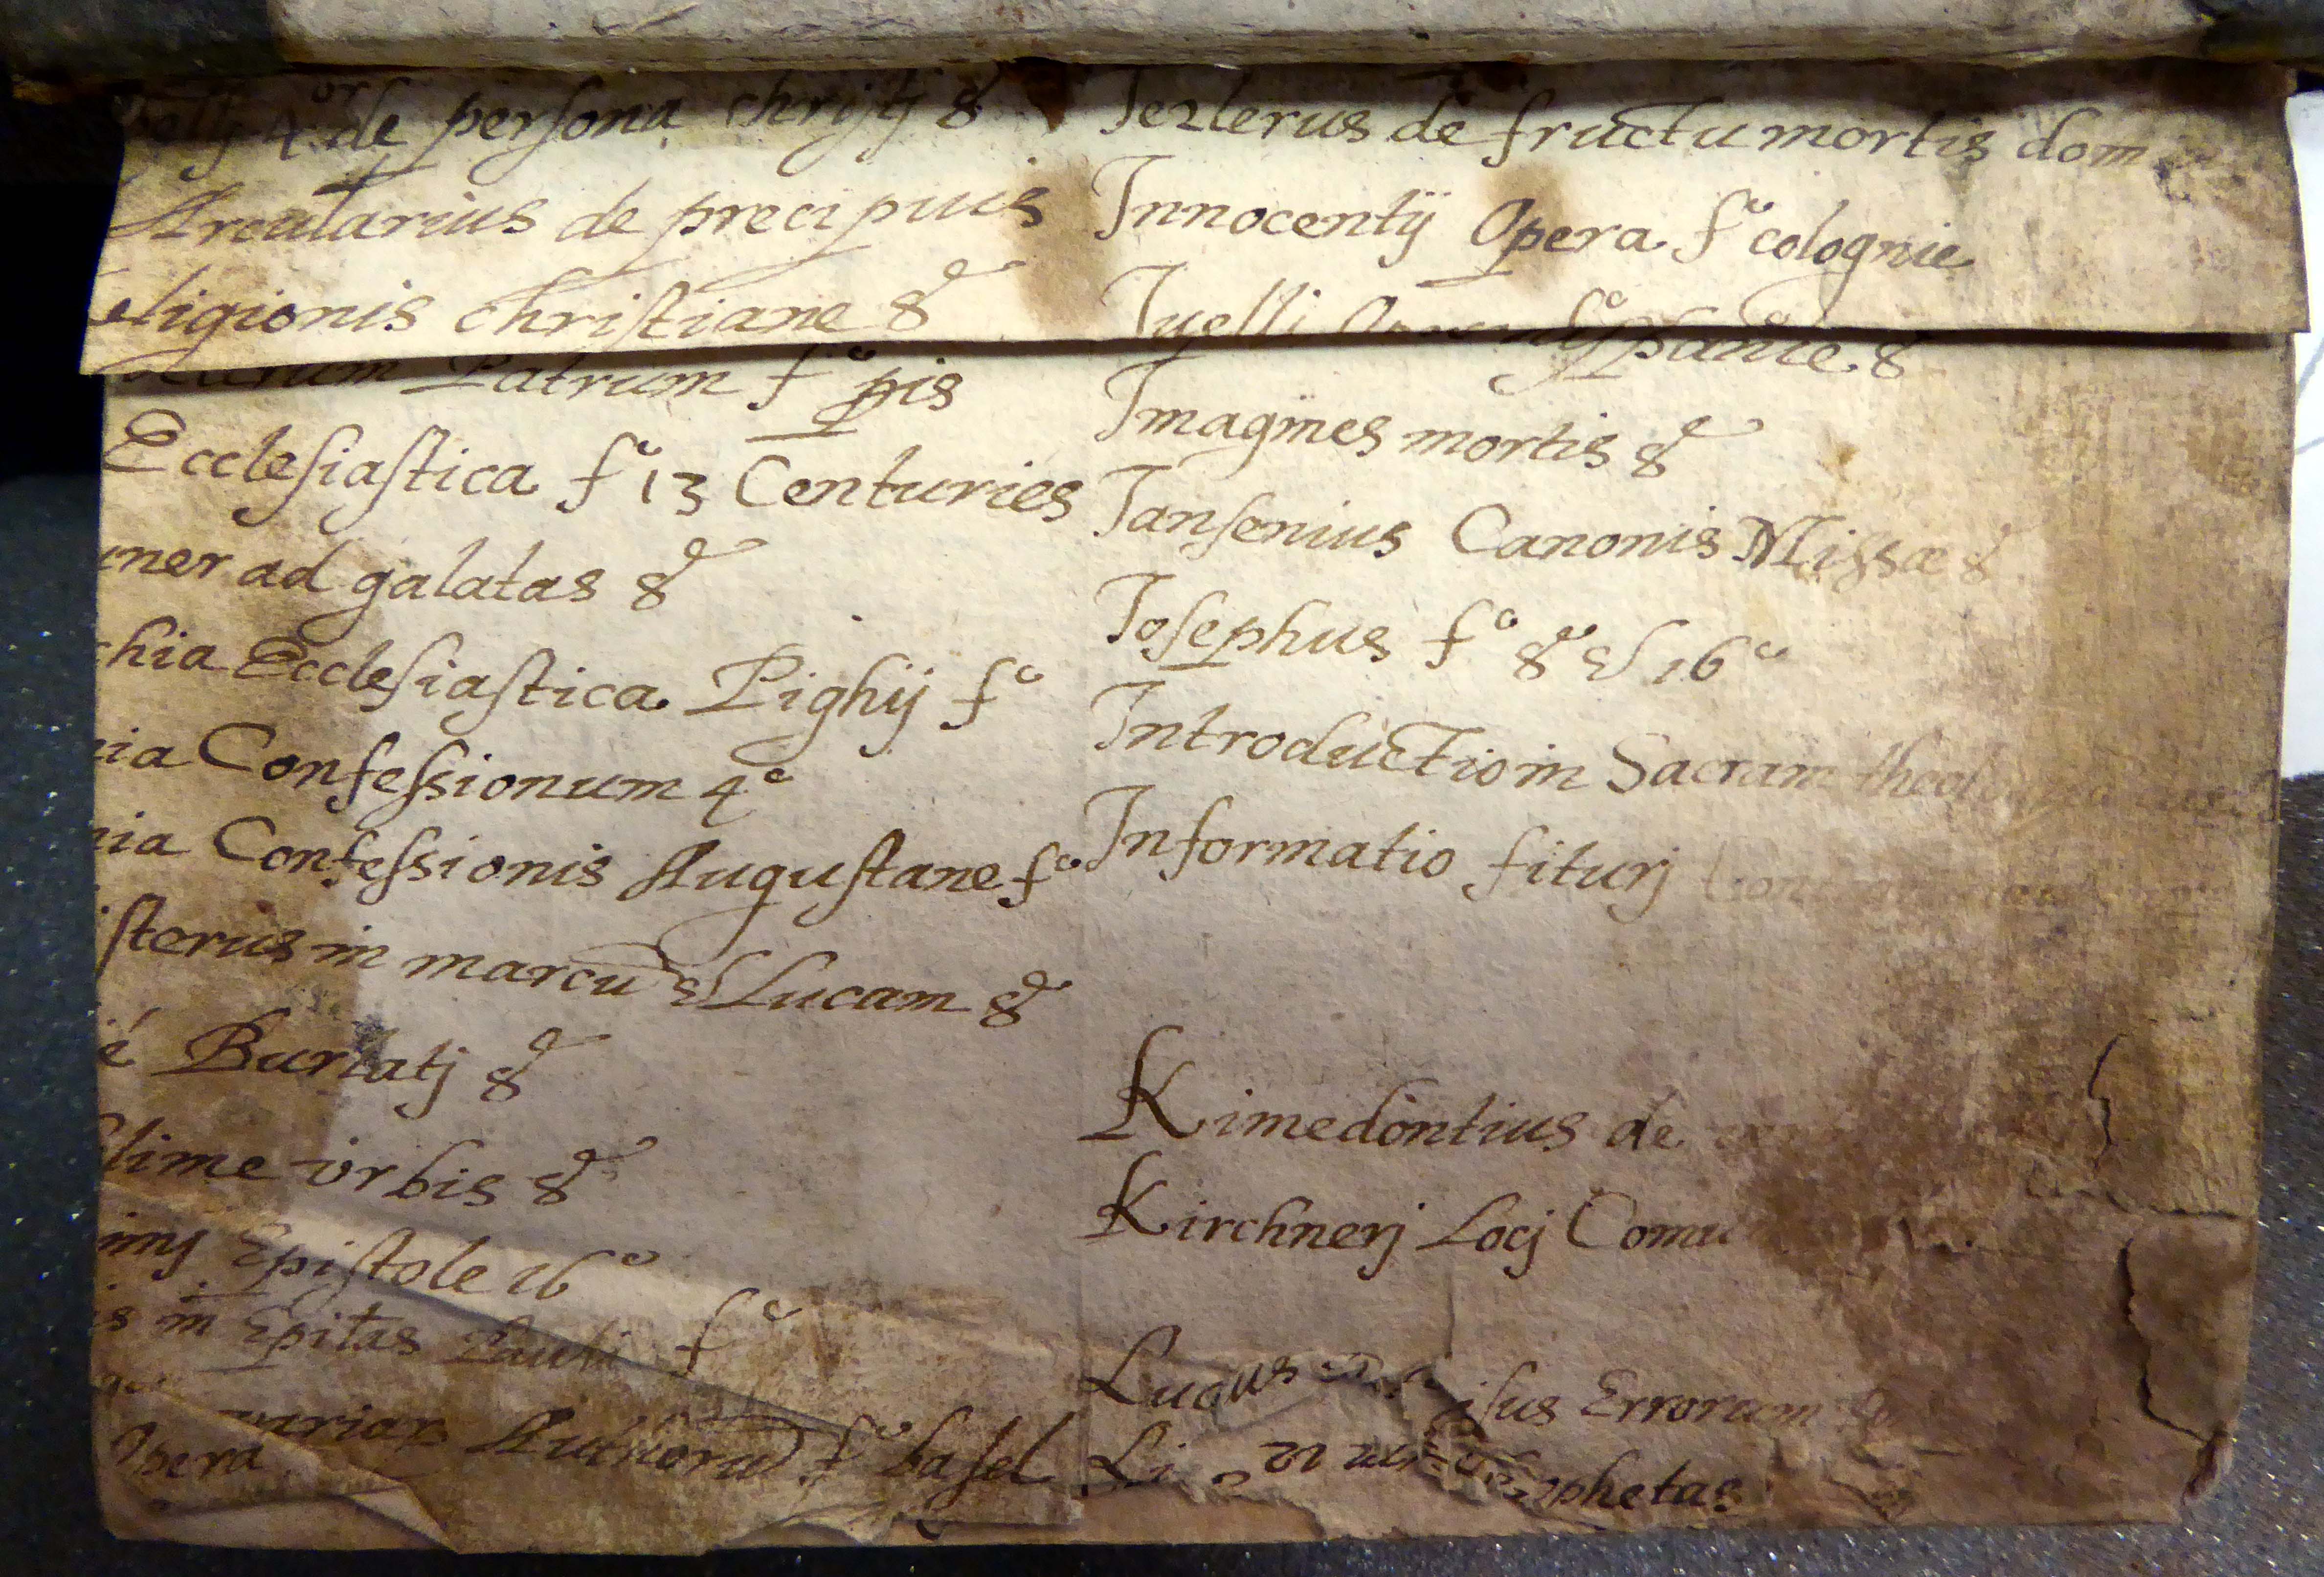 4or de persona christj 8o
Arcularius de precipuis
religionis christiane 8o
Patrum fo pis
Ecclesiastica fo 13 Centuries
ner ad galatas 8o
hia Ecclesiastica Pighij fo
nia Confessionum 4o
nia Confessionis Augustane fo
isterus in marcū et Lucam 8o
é Burlatj 8o
lime vrbis 8o
Epistole 16o
is in Epitas Pauli fo
variar Authorū fo basel
Opera
Iezlerus de fructu mortis dom
Innocentij Opera fo colognie
Iuelli
Imagines mortis 8o
Iansenius Canonis Missæ 8
Iosephus fo 8o et 16o
Introductio in Sacram
Informatio fiturj
Kimedontius de
Kirchnerj Locj Comu
Lucus isus Errorum
Li phetas